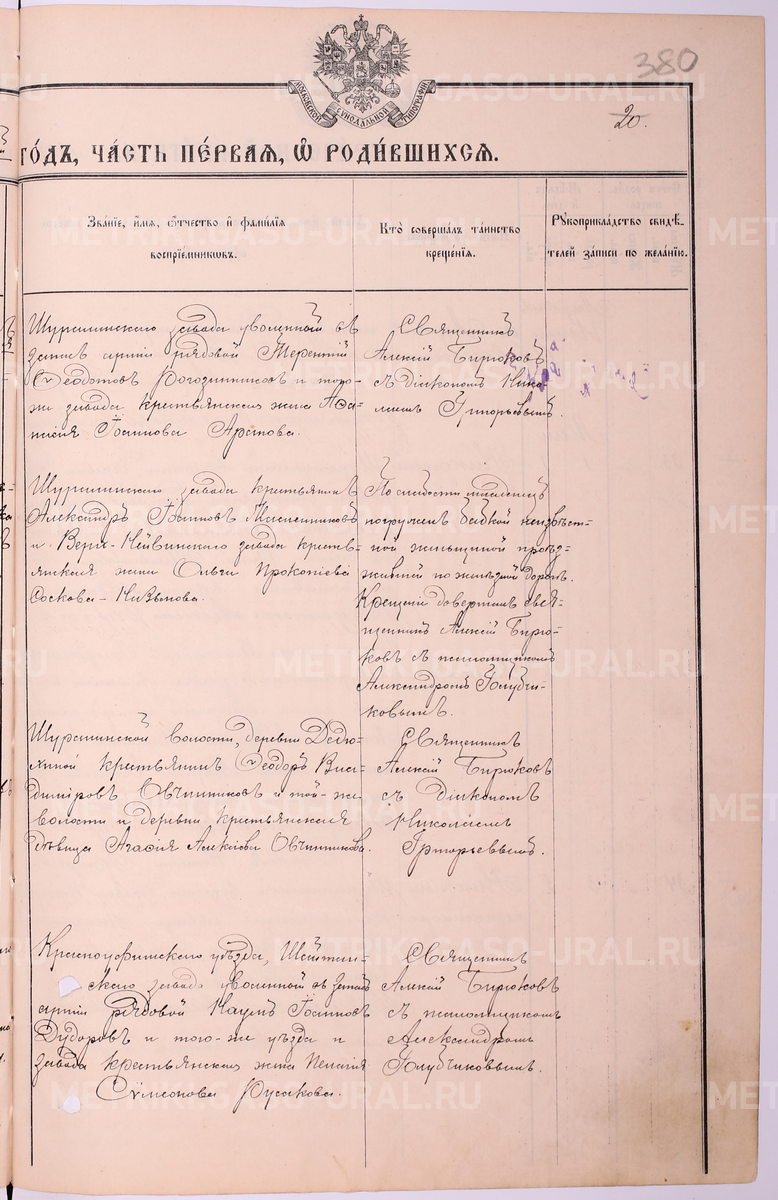 380
20.
МОСКОВСКОЙ СѴНОДАЛЬНОЙ ТИПОГРАФІИ
ГО́ДЪ, ЧА́СТЬ ПЕ́РВАЯ, Ѡ҆ РОДИ́ВШИХСЯ.
Зва́нїе, и҆́мя, ѻ҆́тчество и҆ фами́лїя
воспрїе́мникѡвъ.
Кто̀ соверша́лъ та́инство
креще́нїя.
Рꙋкоприкла́дство свидѣ́-
телей за́писи по жела́нїю.
Шуралинскаго завода уволенный въ
запасъ арміи рядовой Терентій
Ѳеодотовъ Рогозинниковъ и того-
же завода крестьянская жена
Іоаннова
Священникъ
Алексій Бирюковъ
съ діакономъ Нико-
лаемъ Григорьевымъ.
Шуралинскаго завода крестьянинъ
Александръ Іоанновъ Масленниковъ
и Верхъ-Нейвинскаго завода кресть-
янская жена Ольга Прокопіева
Соскова-Кизилова.
По слабости младенецъ
погруженъ бабкой неизвѣст-
ной женщиной проѣз-
жавшей по желѣзной дорогѣ.
Крещеніе довершилъ свя-
щенникъ Алексій Бирю-
ковъ съ псаломщикомъ
Александромъ Голубчи-
ковымъ.
Шуралинской волости, деревни Дедю-
хиной крестьянинъ Ѳеодоръ Вла-
диміровъ Овчинниковъ и той-же
волости и деревни крестьянская
дѣвица Агафія Алексіева Овчинникова.
Священникъ
Алексій Бирюковъ
съ діакономъ
Николаемъ
Григорьевымъ.
Красноуфимскаго уѣзда, Шайтан-
скаго завода уволенный въ запасъ
арміи рядовой Наумъ Іоанновъ
Дудоровъ и того-же уѣзда и
завода крестьянская жена Пелагія
Сѵмеонова Русакова.
Священникъ
Алексій Бирюковъ
съ псаломщикомъ
Александромъ
Голубчиковымъ.
METRIKI.GASO-URAL.RU